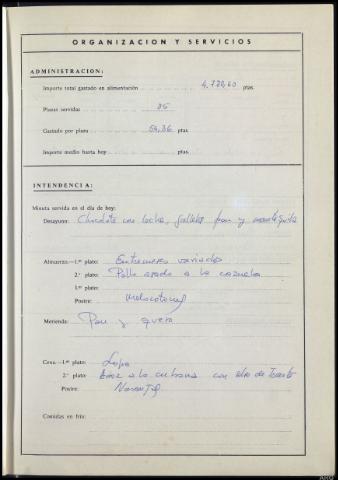 ORGANIZACION Y SERVICIOS
ADMINISTRACION:
Importe total gastado en alimentación 4.728,60 ptas.
Plazas servidas 85
Gastado por plaza 54,36 ptas.
Importe medio hasta hoy ptas.
INTENDENCIA:
Minuta servida en el día de hoy:
Desayuno: Chocolate con leche, galletas pan y mantequilla
Almuerzo.—1.er plato: Entremeses variados
2.º plato: Pollo asado a la cazuela
3.er plato:
Postre: melocotones
Merienda: Pan y queso
Cena.—1.er plato: Sopa
2.º plato: Arroz a la cubana con salsa de Tomate
Postre: Naranjas
Comidas en frío: